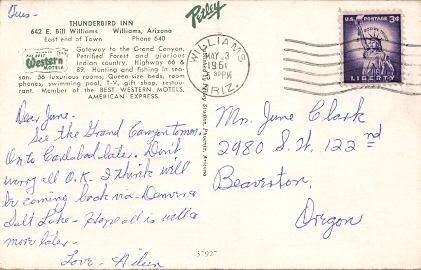 Tues-
THUNDERBIRD INN
642 E. Bill Williams Williams, Arizona
East end of Town Phone 640
Best
Western
MOTELS
Gateway to the Grand Canyon,
Petrified Forest and glorious
Indian country. Highway 66 &
89. Hunting and fishing in sea-
son. 56 luxurious rooms, Queen-size beds, room
phones, swimming pool, T-V, gift shop, restau-
rant. Member of BEST WESTERN MOTELS,
AMERICAN EXPRESS.
Petley
WILLIAMS
MAY 3
30PM
1961
ARIZ.
U.S. POSTAGE 3¢
LIBERTY
Dear June-
See the Grand Canyon tomm.
On to Carlsbad later. Don't
worry all O.K. I think will
be coming back via-Denver &
Salt Lake- Hope all is well &
more later-
Love- Aileen
Mrs. June Clark
2980 S.W. 122nd
Beaverton,
Oregon
Petley Studios, Phoenix, Arizona
37927